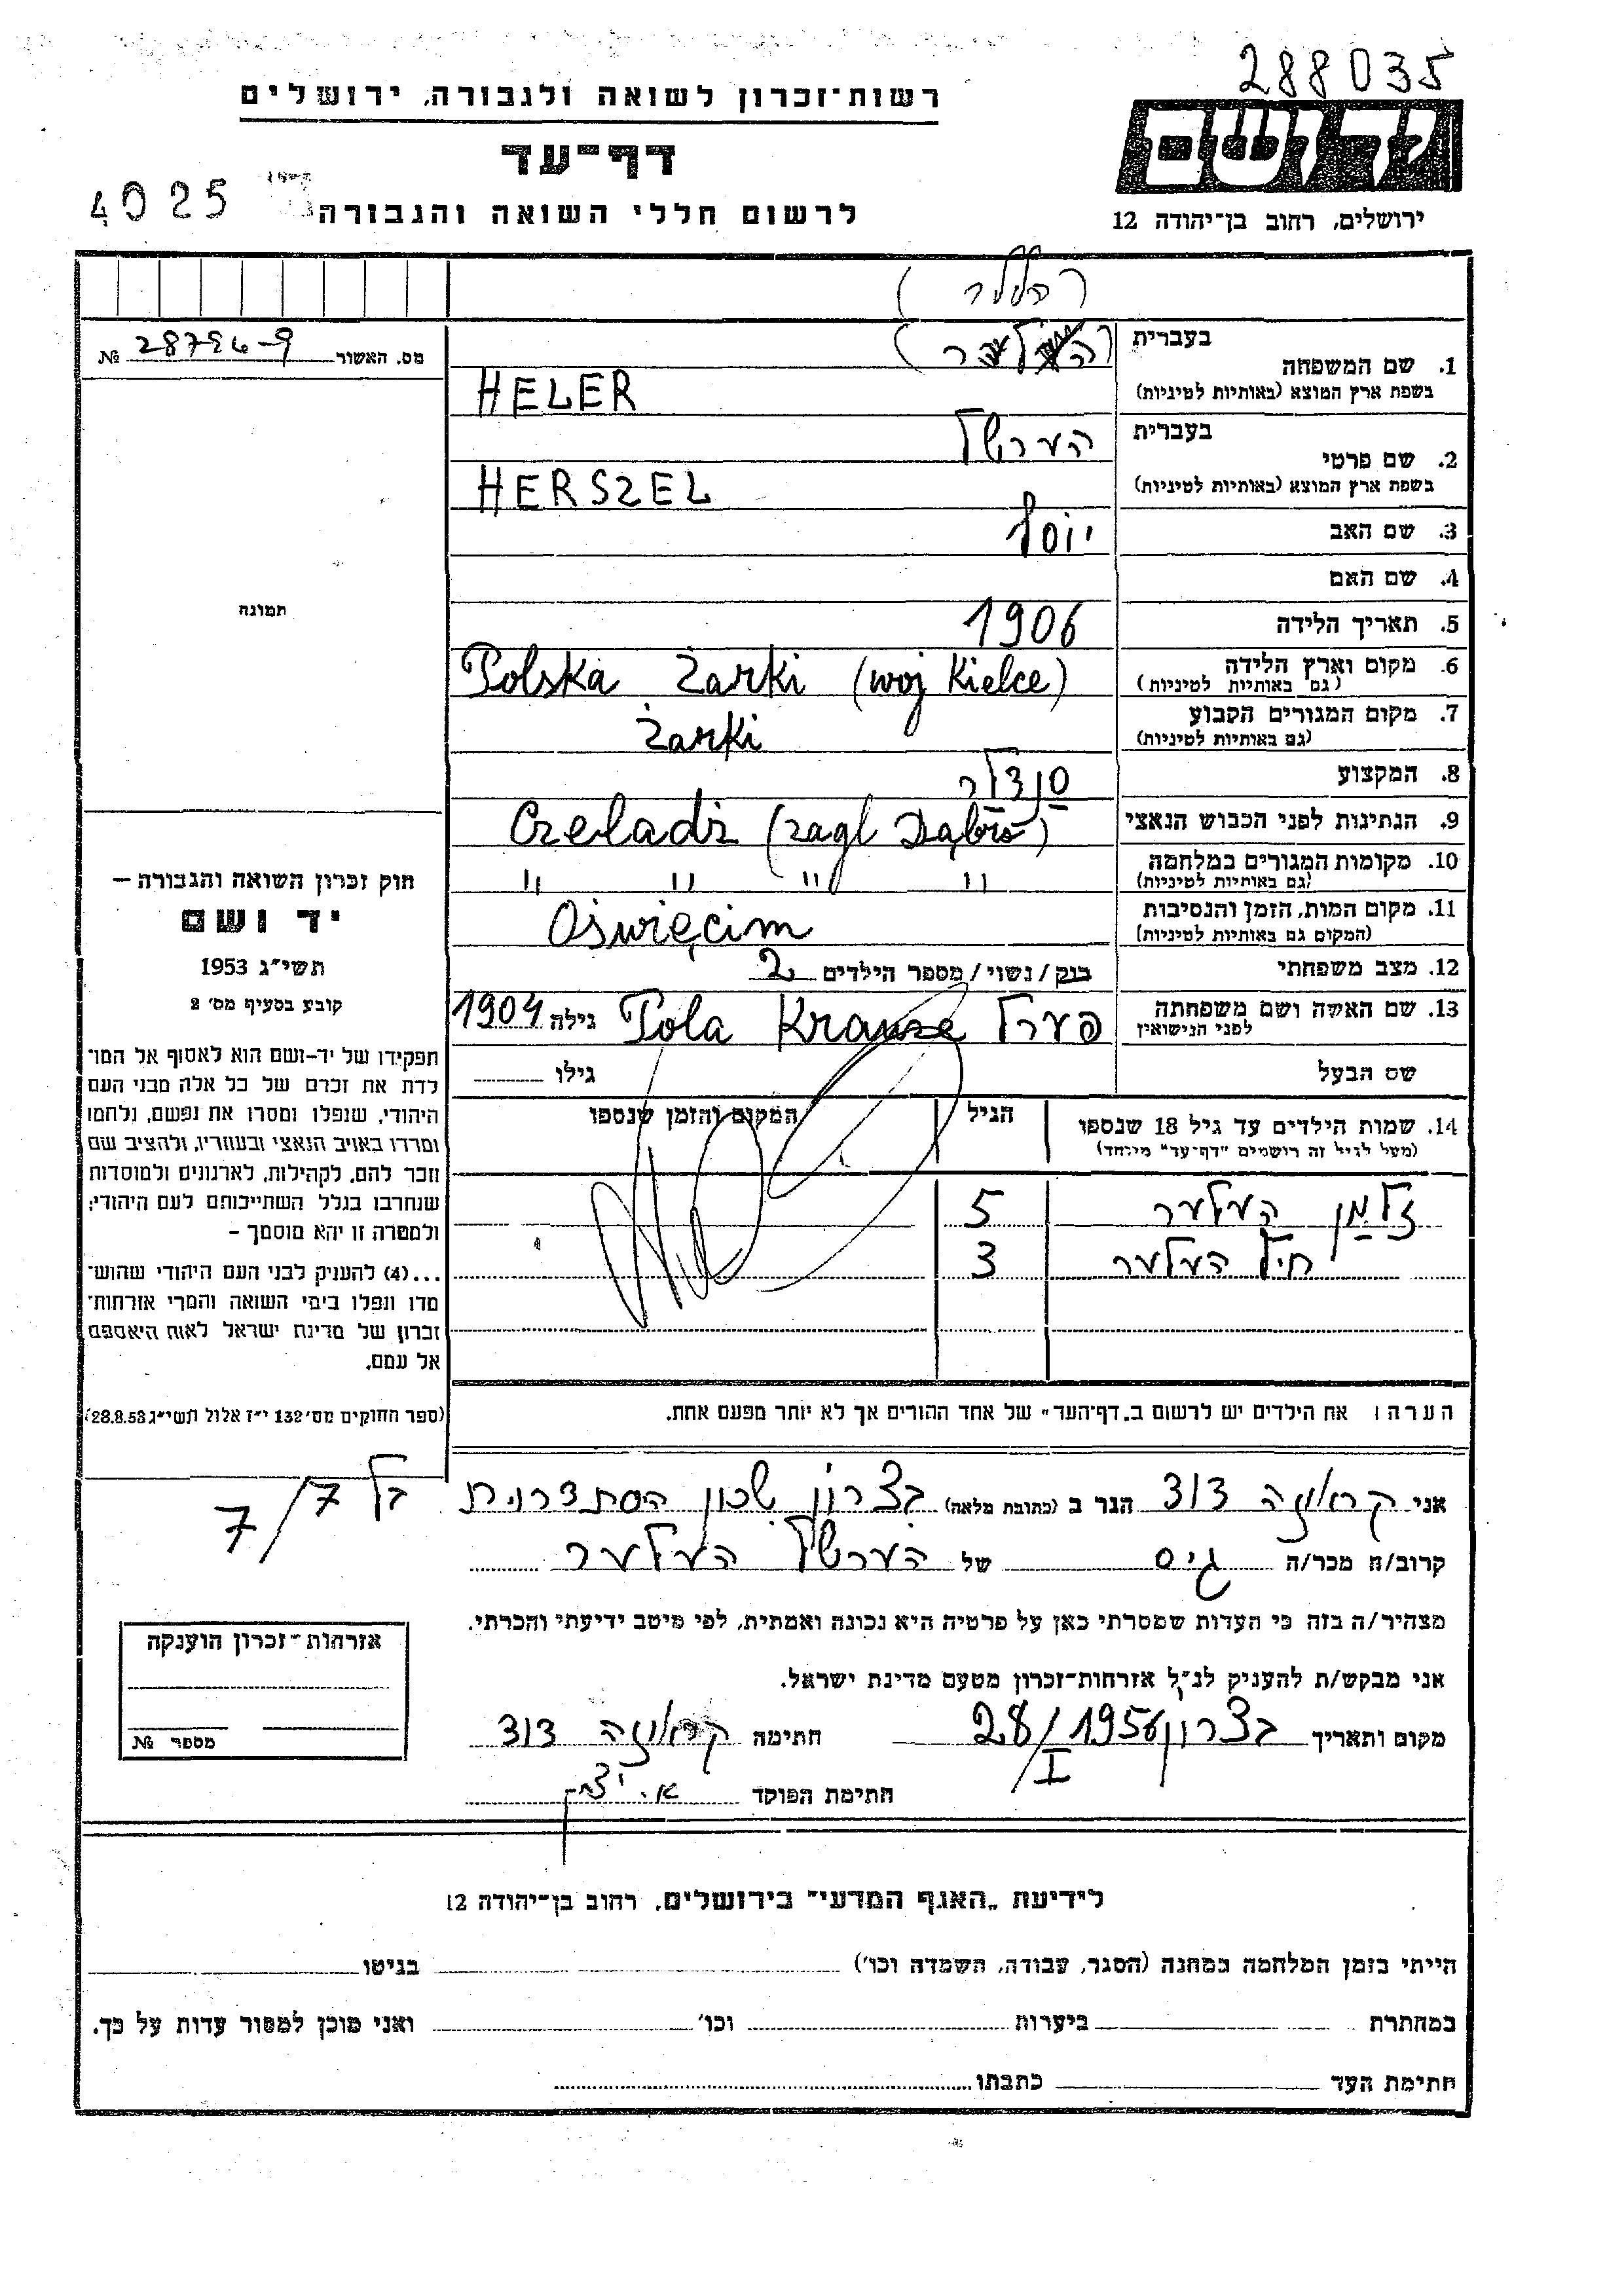 288035
רשות-זכרון לשואה ולגבורה, ירושלים
דף-עד
לרשום חללי השואה והגבורה
4025
ידושם
ירושלים, רחוב בן-יהודה 12
(העלער)
מס. האשור 28796-9 №
1. שם המשפחה
בעברית
בשפת ארץ המוצא (באותיות לטיניות) HELER
2. שם פרטי
בעברית הערשל
בשפת ארץ המוצא (באותיות לטיניות) HERSZEL
3. שם האב יוסף
4. שם האם
5. תאריך הלידה 1906
6. מקום וארץ הלידה (גם באותיות לטיניות) Polska Żarki (woj Kielce)
7. מקום המגורים הקבוע (גם באותיות לטיניות) Żarki
8. המקצוע סנדלר
9. הנתינות לפני הכבוש הנאצי Czeladź (zagl Dąbrs)
10. מקומות המגורים במלחמה (גם באותיות לטיניות) " " " "
11. מקום המות, הזמן והנסיבות (המקום גם באותיות לטיניות) Oświęcim
12. מצב משפחתי רווק / נשוי / מספר הילדים 2
13. שם האשה ושם משפחתה לפני הנישואין פערל Pola Krauze גילה 1904
שם הבעל גילו
14. שמות הילדים עד גיל 18 שנספו (מעל לגיל זה רושמים "דף-עד" מיוחד) הגיל המקום והזמן שנספו
זלמן העלער 5
העלער 3
הערה: את הילדים יש לרשום ב„דף-העד" של אחד ההורים אך לא יותר מפעם אחת.
תמונה
חוק זכרון השואה והגבורה –
יד ושם
תשי"ג 1953
קובע בסעיף מס' 2
תפקידו של יד-ושם הוא לאסוף אל המו־
לדת את זכרם של כל אלה מבני העם
היהודי, שנפלו ומסרו את נפשם, נלחמו
ומרדו באויב הנאצי ובעוזריו, ולהציב שם
וזכר להם, לקהילות, לארגונים ולמוסדות
שנחרבו בגלל השתייכותם לעם היהודי;
ולמטרה זו יהא מוסמך –
...(4) להעניק לבני העם היהודי שהוש־
מדו ונפלו בימי השואה והמרי אזרחות־
זכרון של מדינת ישראל לאות היאספם
אל עמם.
(ספר החוקים מס' 132 י"ז אלול תשי"ג 28.8.53)
7/7
אני קראוזה דוד הגר ב (כתובת מלאה) בצרון שכון הסתדרות
קרוב/ה מכר/ה גיס של הערשל העלער
מצהיר/ה בזה כי העדות שמסרתי כאן על פרטיה היא נכונה ואמתית, לפי מיטב ידיעתי והכרתי.
אני מבקש/ת להעניק לנ"ל אזרחות-זכרון מטעם מדינת ישראל.
מקום ותאריך בצרון 28/I 1956 חתימה קראוזה דוד
חתימת הפוקד
אזרחות-זכרון הוענקה
מספר №
לידיעת „האגף המדעי" בירושלים, רחוב בן-יהודה 12
הייתי בזמן המלחמה במחנה (הסגר, עבודה, השמדה וכו') בגיטו
במחתרת ביערות וכו' ואני מוכן למסור עדות על כך.
חתימת העד כתבתו